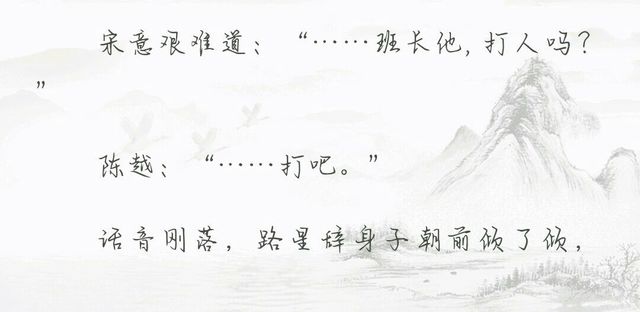 宋意艰难道：“……班长他,打人吗？
”
陈越：“……打吧。”
话音刚落，路星辞身子朝前倾了倾，